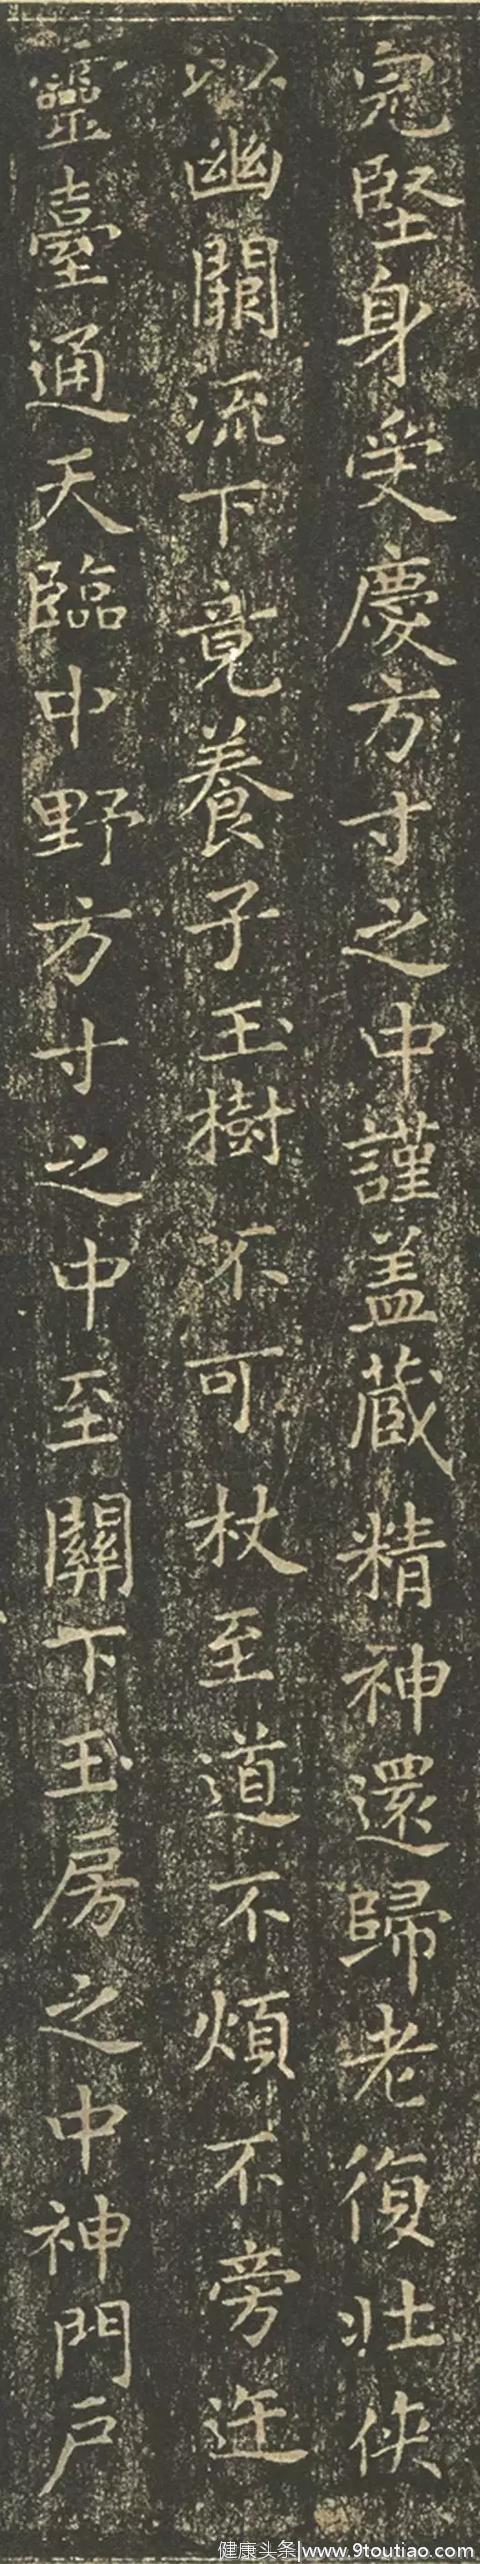 完堅身受慶方寸之中謹盖藏精神還歸老復壯俠
以幽闕流下竟養子玉樹不可杖至道不煩不旁迕
靈臺通天臨中野方寸之中至關下玉房之中神門戶
健康头条|www.9toutiao.com